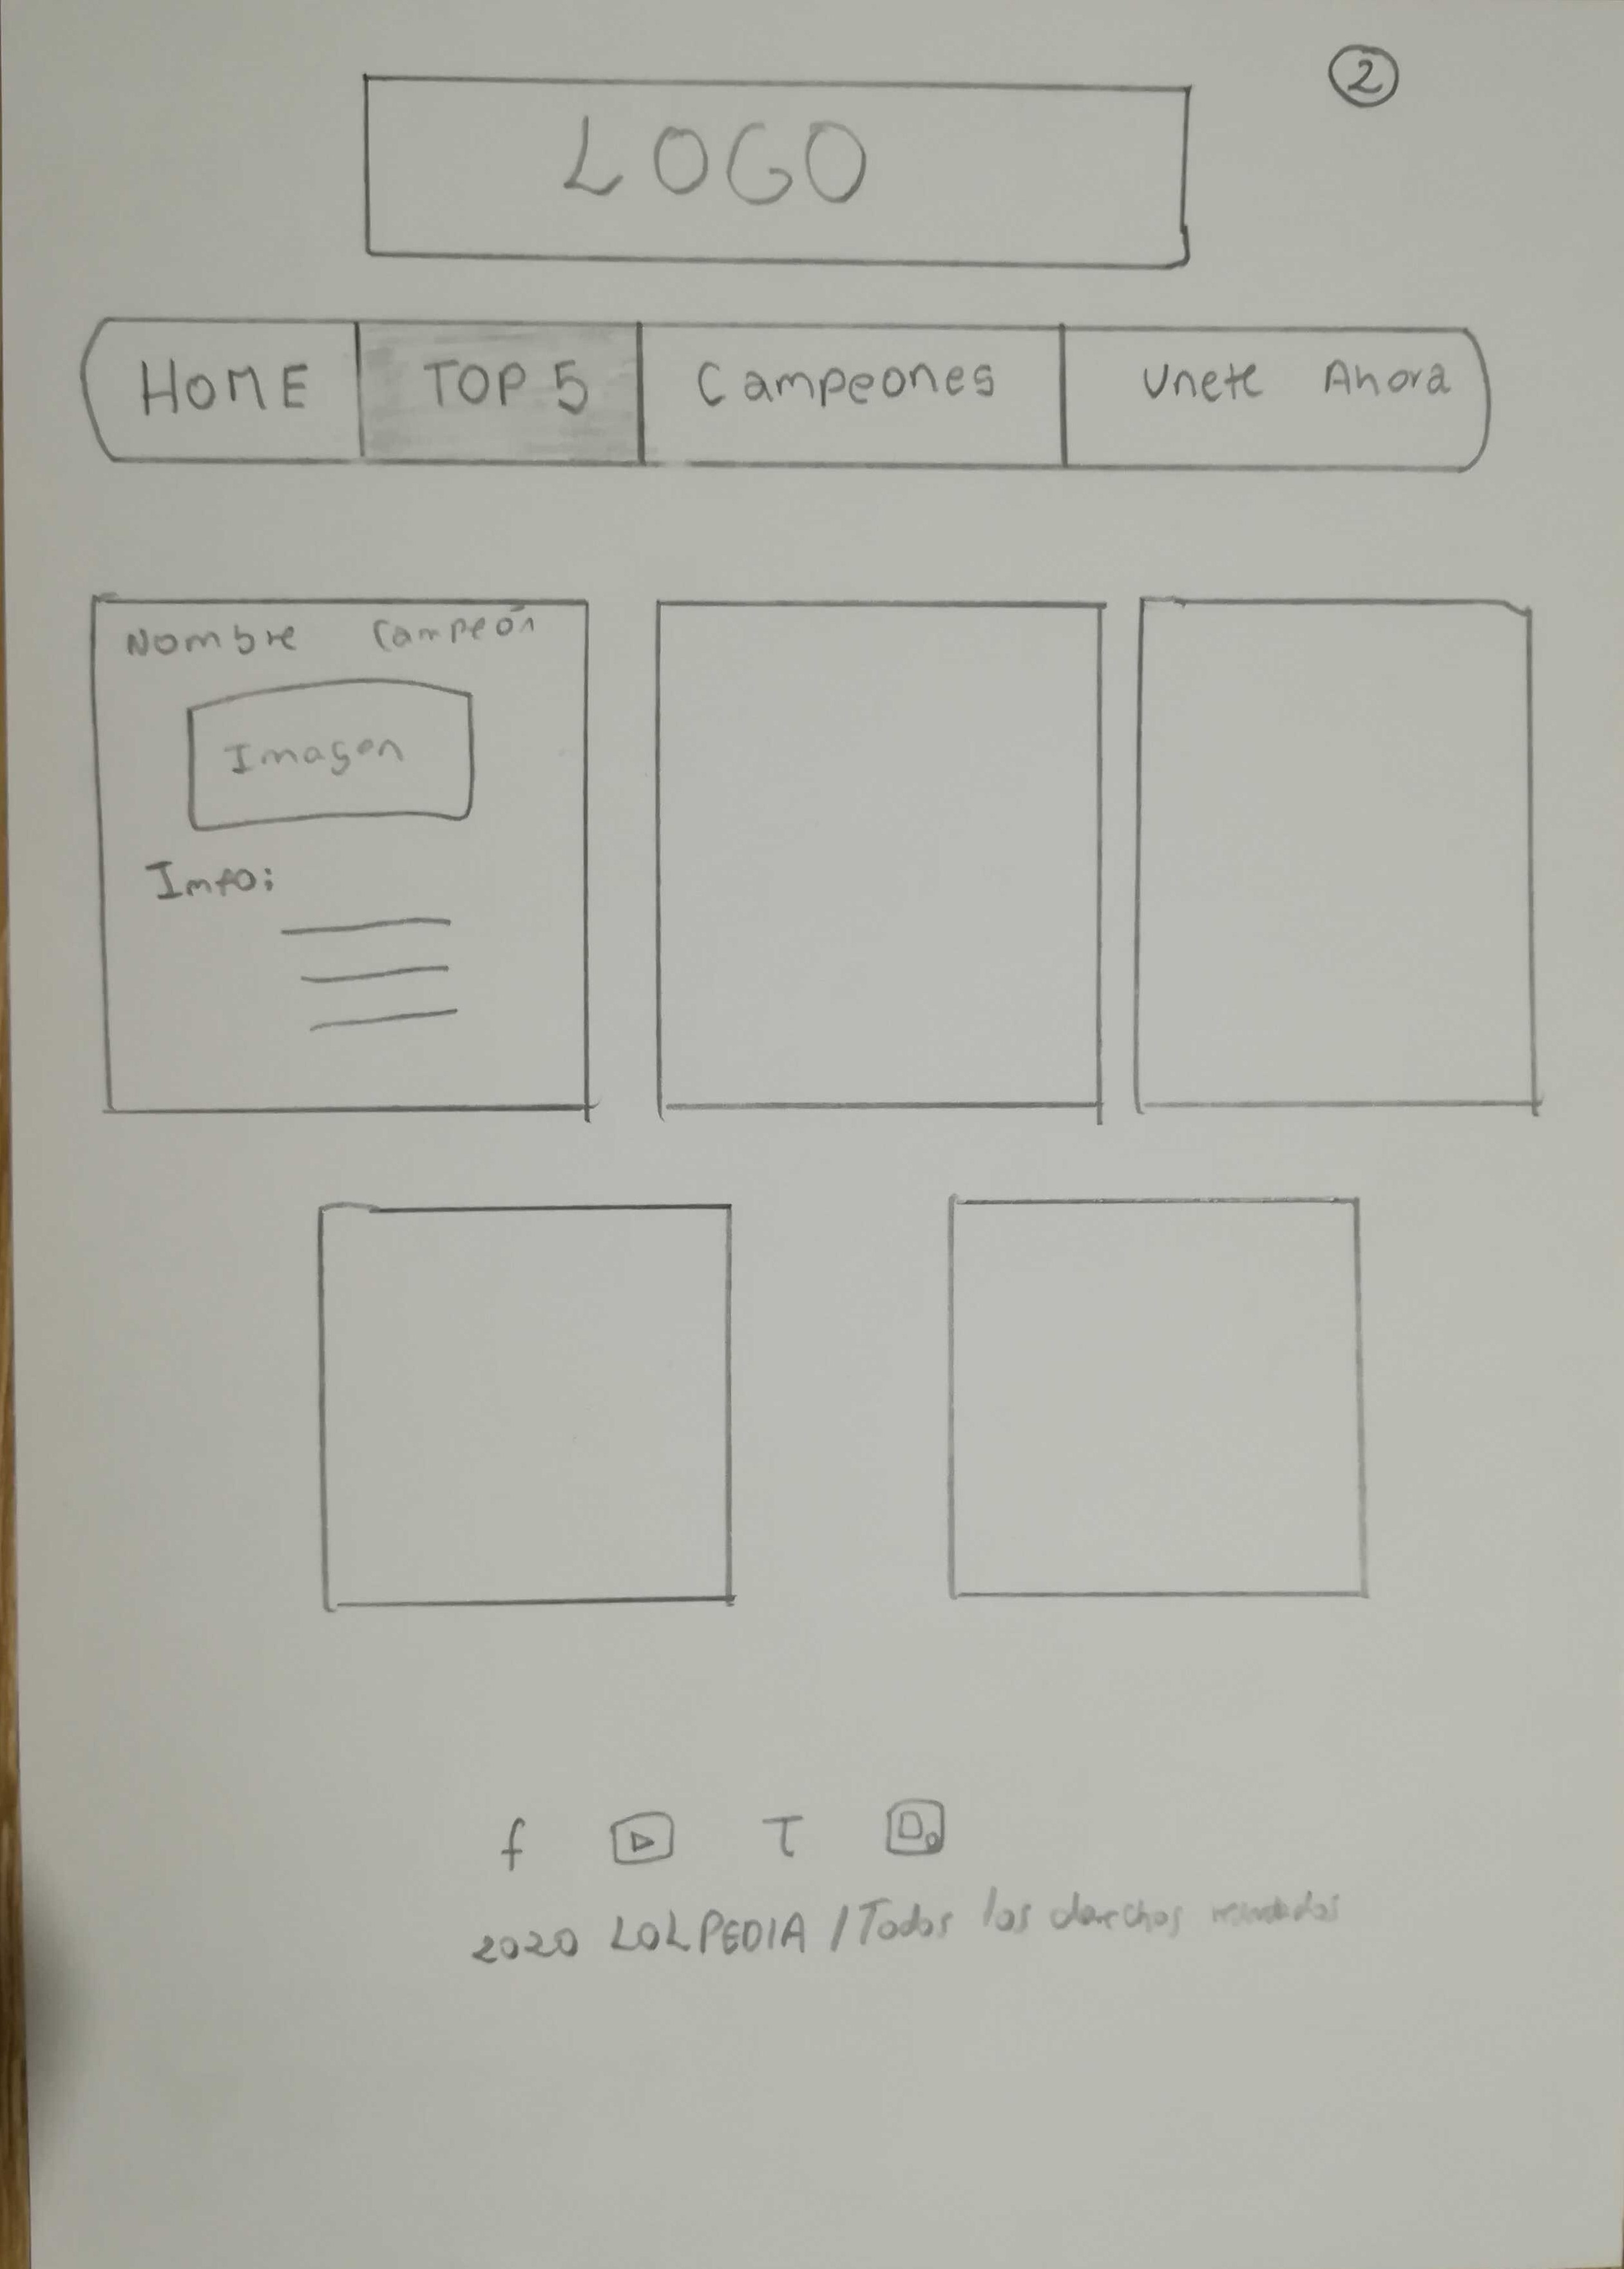 2
LOGO
HOME TOP 5 Campeones Unete Ahora
Nombre Campeón
Imagen
Info:
f T
2020 LOLPEDIA / Todos los derechos